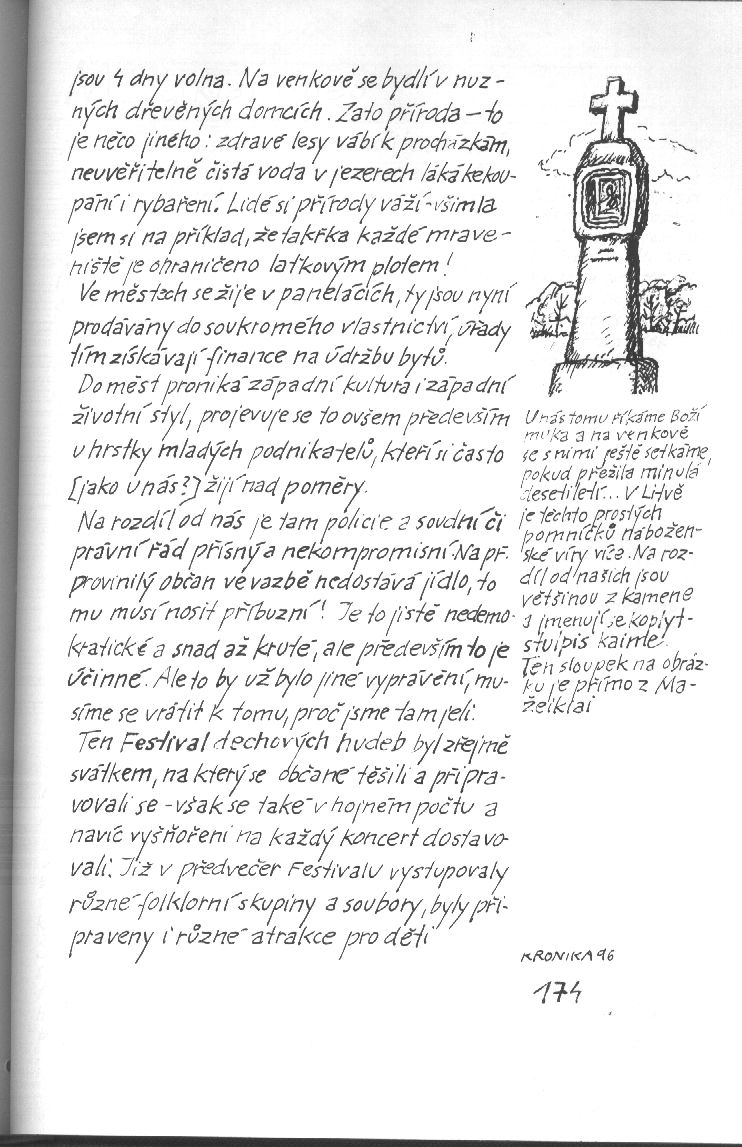 jsou 4 dny volna. Na venkově se bydlí v nuz-
ných dřevěných domcích. Zato příroda – to
je něco jiného: zdravé lesy vábí k procházkám,
neuvěřitelně čistá voda v jezerech láká ke kou-
pání i rybaření. Lidé si přírody váží - všimla
jsem si na příklad, že takřka každé mrave-
niště je ohraničeno laťkovým plotem!
Ve městech se žije v panelácích, ty jsou nyní
prodávány do soukromého vlastnictví, úřady
tím získávají finance na údržbu bytů.
Do měst proniká západní kultura i západní
životní styl, projevuje se to ovšem především
u hrstky mladých podnikatelů, kteří si často
[jako u nás?] žijí nad poměry.
Na rozdíl od nás je tam policie a soudní či
právní řád přísný a nekompromisní. Na př.
provinilý občan ve vazbě nedostává jídlo, to
mu musí nosit příbuzní! Je to jistě nedemo-
kratické a snad až kruté, ale především to je
účinné. Ale to by už bylo jiné vyprávění, mu-
síme se vrátit k tomu, proč jsme tam jeli.
Ten Festival dechových hudeb byl zřejmě
svátkem, na který se občané těšili a připra-
vovali se - však se také v hojném počtu a
navíc vyšňoření na každý koncert dostavo-
vali. Již v předvečer Festivalu vystupovaly
různé folklorní skupiny a soubory, byly při-
praveny i různé atrakce pro děti
U nás tomu říkáme Boží
muka a na venkově
se s nimi ještě setkáme,
pokud přežila minulá
desetiletí... V Litvě
je těchto prostých
pomníčků nábožen-
ské víry více. Na roz-
díl od našich jsou
většinou z kamene
a jmenují se koplyt-
stulpis kaime.
Ten sloupek na obráz-
ku je přímo z Ma-
žeikiai
KRONIKA 96
174